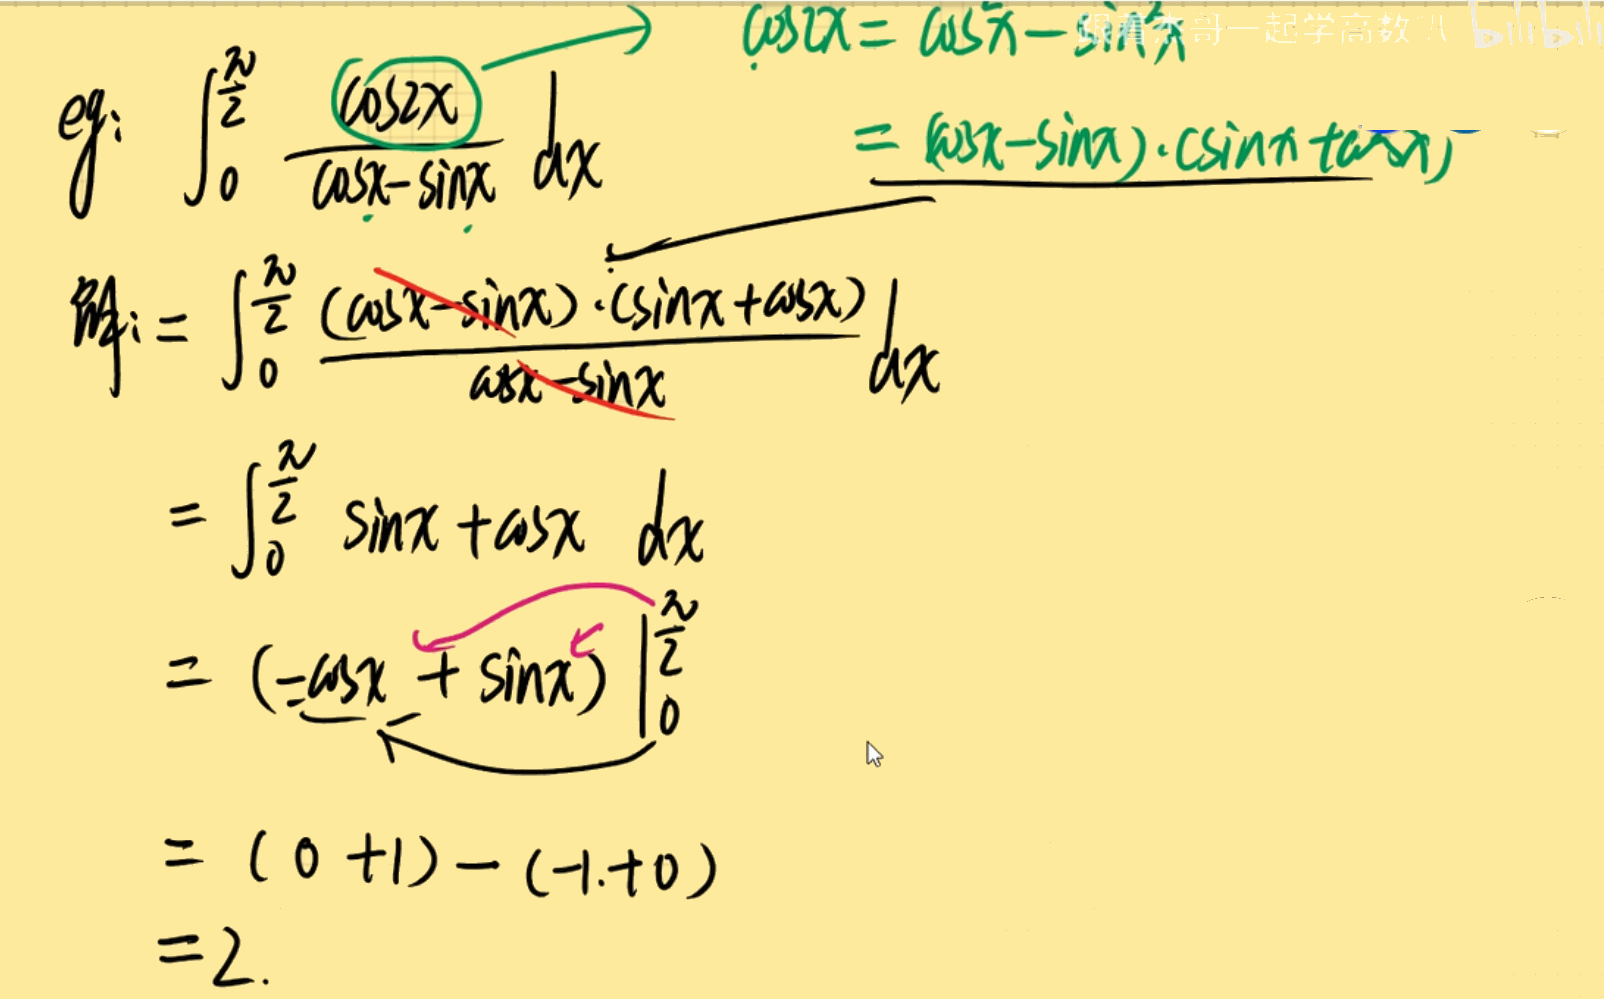 cos2x = cos²x - sin²x
跟着杰哥一起学高数 bilibili
eg: ∫₀^(π/2) cos2x / (cosx - sinx) dx
= (cosx - sinx)·(sinx + cosx)
解: = ∫₀^(π/2) (cosx - sinx)·(sinx + cosx) / (cosx - sinx) dx
= ∫₀^(π/2) sinx + cosx dx
= (-cosx + sinx) |₀^(π/2)
= (0 + 1) - (-1 + 0)
= 2.